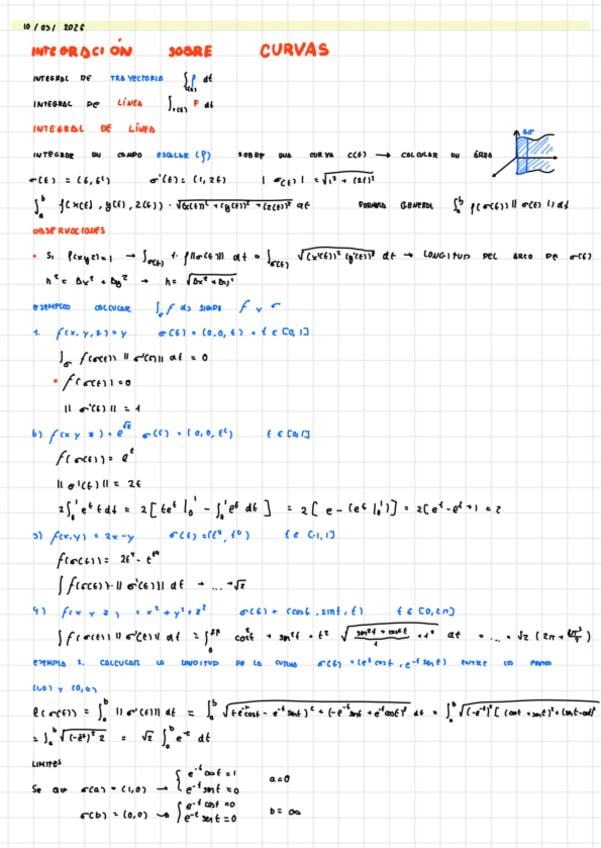 10/03/2026
INTEGRACIÓN SOBRE CURVAS
INTEGRAL DE TRAYECTORIA ∫σ(t) f dt
INTEGRAL DE LÍNEA ∫σ(t) F dt
INTEGRAL DE LÍNEA
INTEGRAR UN CAMPO ESCALAR (f) SOBRE UNA CURVA C(t) → CALCULAR UN ÁREA
σ(t) = (t, t²) σ'(t) = (1, 2t) |σ(t)| = √1² + (2t)²
∫ₐᵇ f(x(t), y(t), z(t)) · √(x(t))² + (y(t))² + (z(t))² dt FORMULA GENERAL ∫ₐᵇ f(σ(t)) ||σ(t)|| dt
OBSERVACIONES
• Si f(x y z) = 1 → ∫σ(t) 1 · ||σ(t)|| dt = ∫σ(t) √(x'(t))² (y'(t))² dt → LONGITUD DEL ARCO DE σ(t)
h² = Δx² + Δy² → h = √Δx² + Δy²
EJEMPLO CALCULAR ∫σ f ds SIENDO f y σ
1. f(x, y, z) = y σ(t) = (0, 0, t) = t ∈ [0, 1]
∫σ f(σ(t)) ||σ'(t)|| dt = 0
• f(σ(t)) = 0
||σ'(t)|| = 1
b) f(x y z) = e^√z σ(t) = (0, 0, t²) t ∈ [0, 1]
f(σ(t)) = eᵗ
||σ'(t)|| = 2t
2∫₀¹ eᵗ t dt = 2[teᵗ|₀¹ - ∫₀¹ eᵗ dt] = 2[e - (eᵗ|₀¹)] = 2[e¹ - e¹ + 1 = 2
3) f(x, y) = 2x - y t ∈ [-1, 1]
∫ f(σ(t)) · ||σ'(t)|| dt → ... → √2
4) f(x y z) = x² + y² + z² σ(t) = (cost, sint, t) t ∈ [0, 2π]
∫ f(σ(t)) ||σ'(t)|| dt = ∫₀²π cos²t + sen²t + t² √sen²t + cos²t + 1² dt = ... = √2 (2π +
EJEMPLO 2. CALCULAR LA LONGITUD DE LA CURVA σ(t) = (e⁻ᵗ cost, e⁻ᵗ sent) ENTRE LOS
(1,0) Y (0,0)
ℓ(σ(t)) = ∫ₐᵇ ||σ'(t)|| dt = ∫ₐᵇ √(-e⁻ᵗcost - e⁻ᵗ sent)² + (-e⁻ᵗ sent + e⁻ᵗ cost)² dt = ∫ₐᵇ √(-e⁻ᵗ)² [(cost + sent)² + (sent - cost)²
= ∫ₐᵇ √(-e⁻ᵗ)² 2 = √2 ∫ₐᵇ e⁻ᵗ dt
LIMITES
Se que σ(a) = (1,0) → { e⁻ᵗ cost = 1 a = 0
e⁻ᵗ sent = 0
σ(b) = (0,0) → { e⁻ᵗ cost = 0 b = ∞
e⁻ᵗ sent = 0